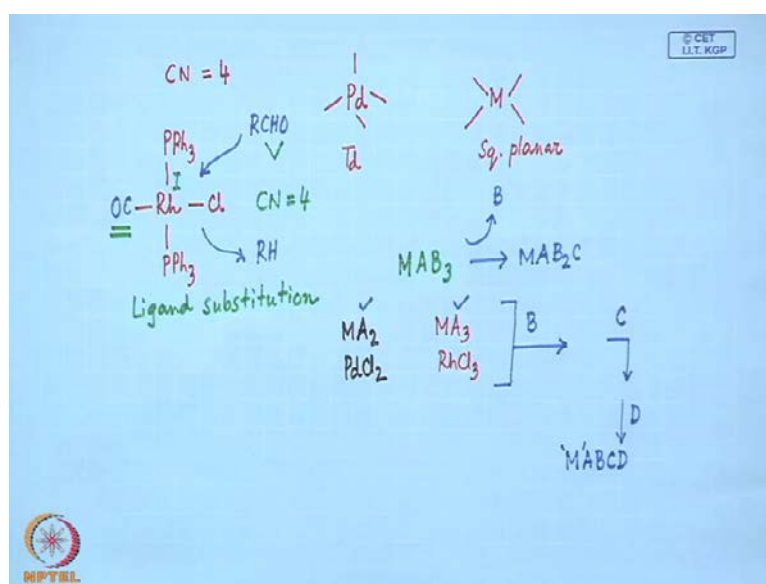 © CET
I.I.T. KGP
CN = 4
Pd
M
Td
Sq. planar
PPh3
RCHO
I
OC—Rh—Cl
CN = 4
PPh3
RH
Ligand substitution
B
MAB3 → MAB2C
MA2
MA3
PdCl2
RhCl3
B
C
D
'M'ABCD
NPTEL